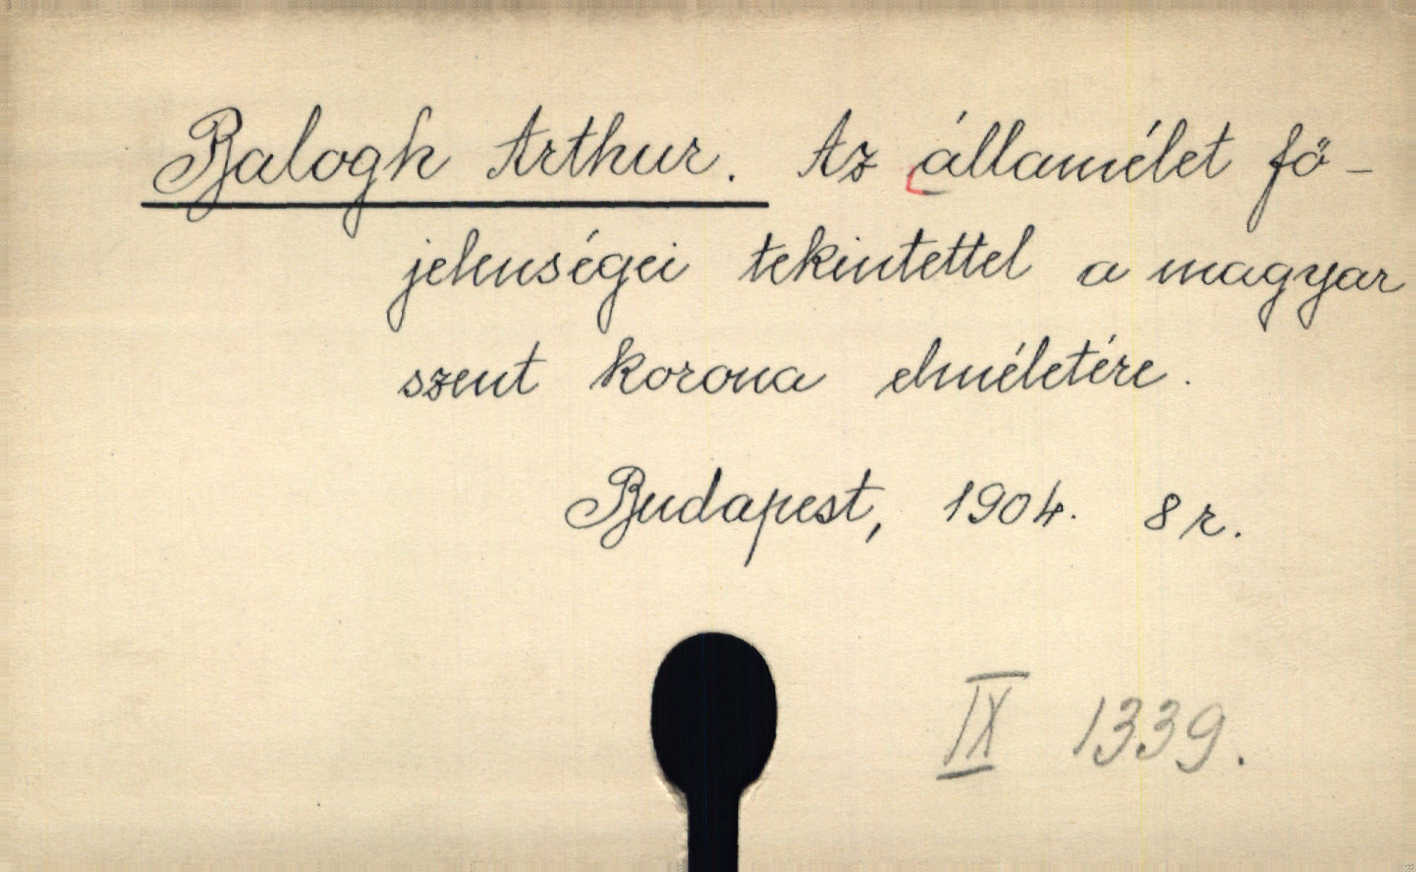 Balogh Arthur. Az államélet fő-
jelenségei tekintettel a magyar
szent korona elméletére.
Budapest, 1904. 8 r.
IX 1339.